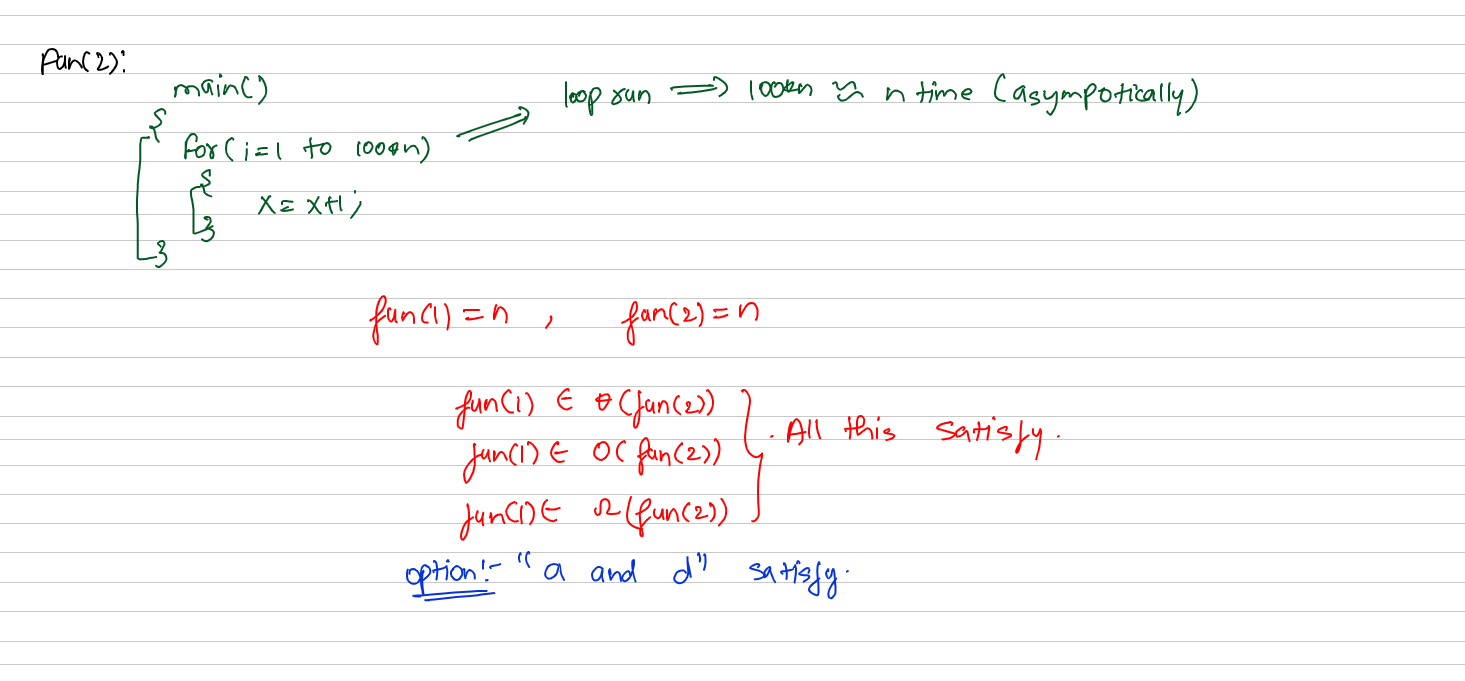 fun(2):
main()
{
for(i=1 to 100*n)
{
x = x+1;
}
}
loop run ⟹ 100*n ≈ n time (asympotically)
fun(1) = n , fun(2) = n
fun(1) ∈ θ(fun(2))
fun(1) ∈ O(fun(2))
fun(1) ∈ Ω(fun(2))
. All this satisfy.
option:- "a and d" satisfy.